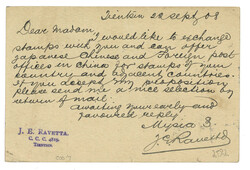 Tientsin 22 Sept 08
Dear Madam,
I would like to exchange
stamps with you and can offer
Japanese, Chinese and Foreign post
offices in China for stamps of your
country and adjacent countries.
If you accept this proposition
please send me a nice selection by
return of mail.
Awaiting yours early and
favoured reply
J. E. RAVETTA.
TIENTSIN
J E Ravetta